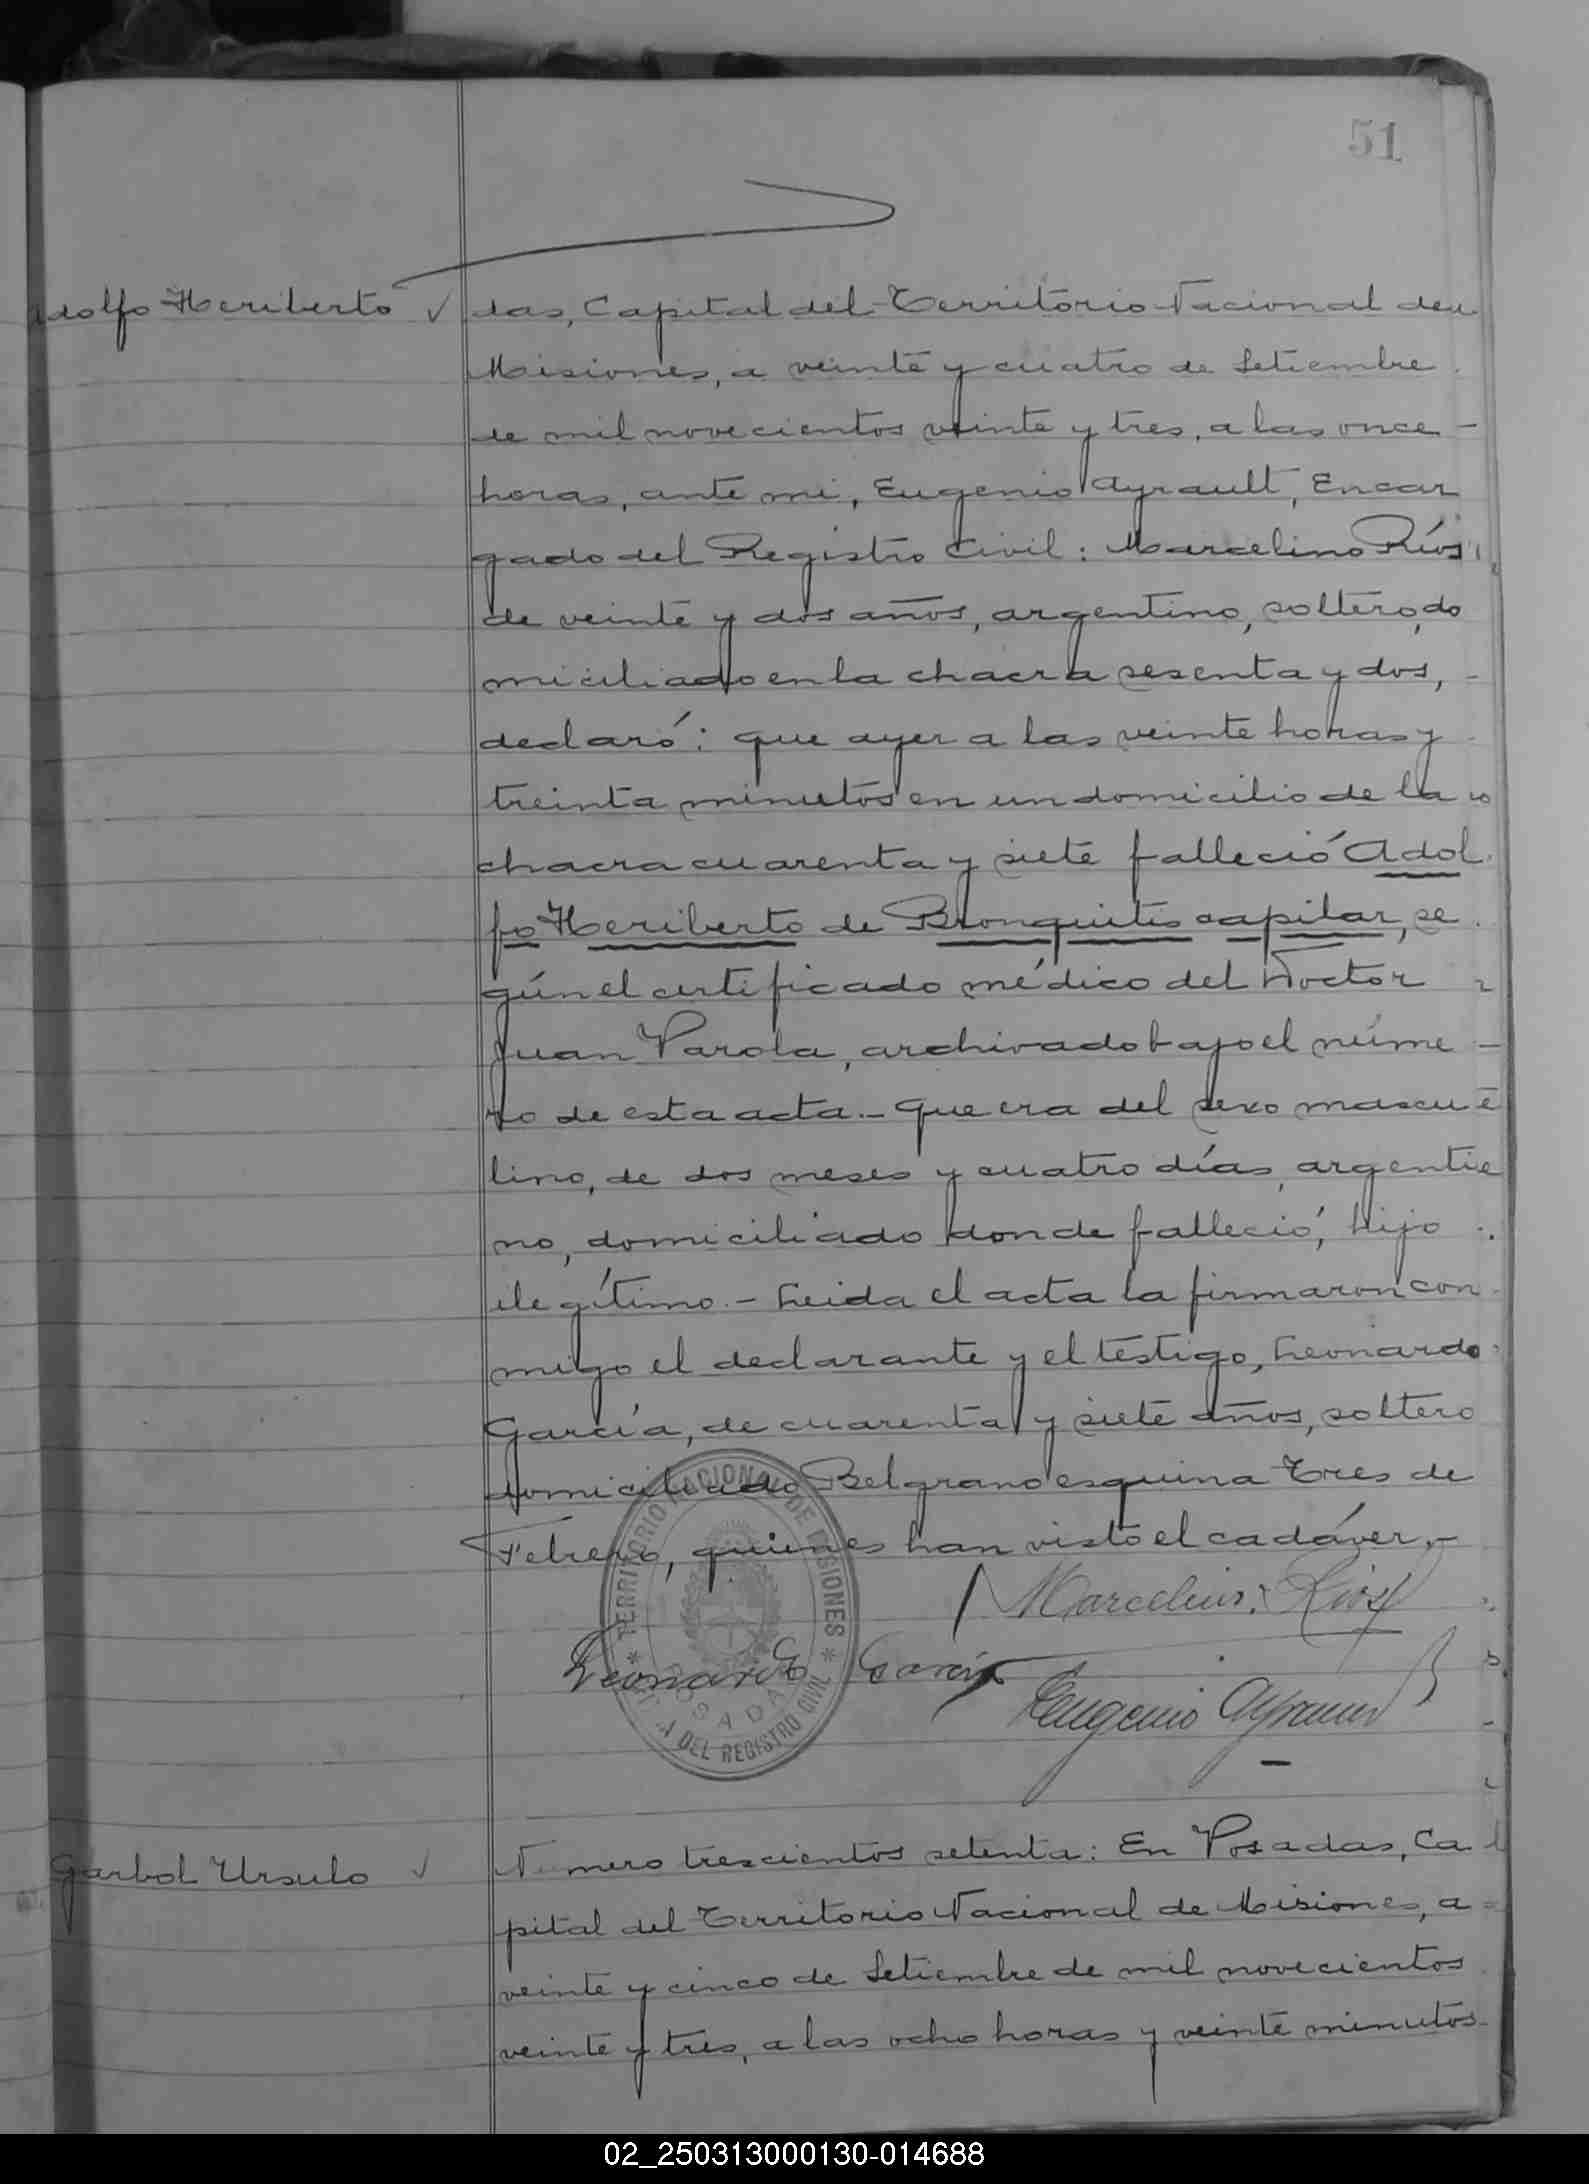 51
Adolfo Heriberto
das, Capital del Territorio Nacional de
Misiones, a veinte y cuatro de Setiembre
de mil novecientos veinte y tres, a las once -
horas, ante mi, Eugenio Ayrault, Encar
gado del Registro Civil: Marcelino Ríos,
de veinte y dos años, argentino, soltero, do
miciliado en la chacra sesenta y dos, -
declaró: que ayer a las veinte horas y
treinta minutos en un domicilio de la
chacra cuarenta y siete falleció Adol
fo Heriberto de Bronquitis capilar, se
gún el certificado médico del Doctor
Juan Parola, archivado bajo el núme -
ro de esta acta. - Que era del sexo mascu
lino, de dos meses y cuatro días, argenti
no, domiciliado donde falleció, hijo
ilegítimo. - Leida el acta la firmaron con
migo el declarante y el testigo, Leonardo
García, de cuarenta y siete años, soltero
domiciliado Belgrano esquina Tres de
Febrero, quienes han visto el cadáver. -
Marcelino Ríos
Leonardo García
Eugenio Ayrault
TERRITORIO NACIONAL DE MISIONES
POSADAS
DEL REGISTRO CIVIL
Garbol Ursulo
Numero trescientos setenta: En Posadas, Ca
pital del Territorio Nacional de Misiones, a
veinte y cinco de Setiembre de mil novecientos
veinte y tres, a las ocho horas y veinte minutos
02_250313000130-014688